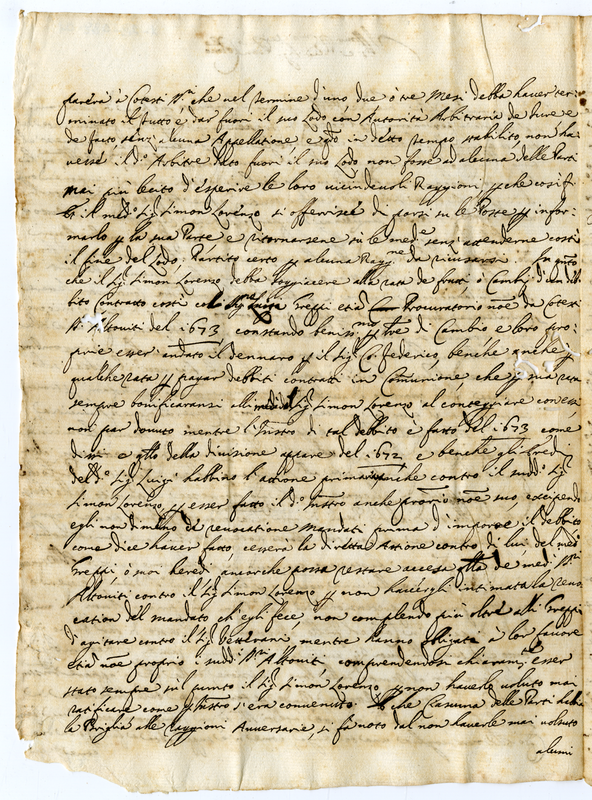 parerà à Cotesti SS.ri che nel termine d'uno due ò tre Mesi debba haver ter-
minato il tutto e dar fuori il suo Lodo con Autorità Arbitraria de Iure e
de facto senz'alcuna Appellatione e q.do in detto tempo stabilito non ha-
vesse il d.o Arbitro dato fuori il suo Lodo non fosse ad alcuna delle Parti
mai più lecito d'esperire le loro vicendevoli Raggioni, che così
il med.o Sig. Simon Lorenzo si offerisce di porsi su le Poste p infor-
marlo p la sua Parte e ritornarsene su le med.e senz'attenderne costì
il fine del Lodo, Partito certo p alcuna Ragg.ne da ricusarsi. In q.to
che il Sig. Simon Lorenzo debba soggiacere alla rata de frutti, ò Cambij d'un de-
bito Contratto costì col Sig. Greppi Procuratorio nõe da Cotesti
SS. Altoviti del 1673 constando beniss.mo p tre di Cambio e loro pro-
prie esser andato il dennaro p il Sig. Co: Federico, benche anche p
qualche rata p pagar debbiti contratti in Comunione, che p sua rata
sempre bonificaransi al Sig. Simon Lorenzo al conteggiare con essi
non par dovuto mentre l'Instro di tal debbito è fatto del 1673 come
dissi e l'atto della divisione appare del 1672 e benche gli Eredi
del d.o Sig. Luigi habbino l'attione primaria anche contro il sudd.o Sig.
Simon Lorenzo p esser fatto il d.o Instro anche proprio nõe suo
egli non dimeno di revocatione Mandati prima d'imporre il debbito
come dice haver fatto, cesserà la diretta Attione contro di lui, del med.o
Greppi, ò suoi heredi ancorche possa restare accesa de med.i SS.ri
Altoviti contro il Sig. Simon Lorenzo p non havergli intimata la revo-
cation del mandato ch'egli fece non complendo più oltre alli Greppi
d'agitare contro il Sig. Vetterani mentre hanno obligati à lor favore
etiã nõe proprio i sudd.i SS. Altoviti comprendendosi chiaram.te esser
stato sempre sul punto il Sig. Simon Lorenzo p non haverle voluto mai
ratificare come p Instro s'era convenuto che Ciascuna delle Parti habbia
la Briglia alle Raggioni Avversarie, si fà noto dal non haverle mai voluto
alcuni